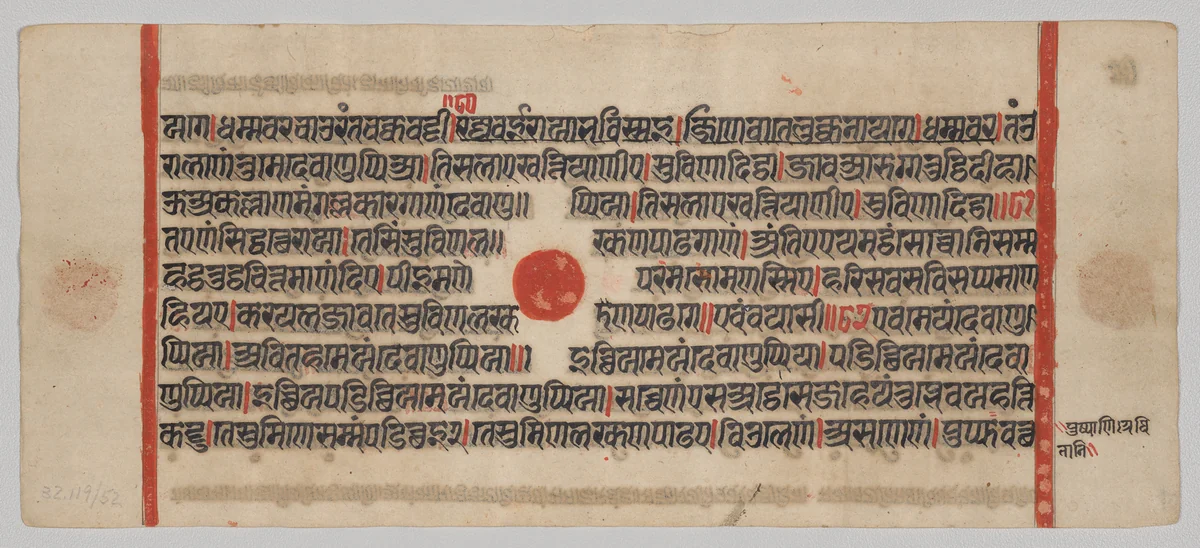 माणे।धम्मवरचाउरंतचक्कवट्टी।रज्जवईराया भविस्सइ।जिणे वा तेलुक्कनायगे।धम्मवर।तंउ
रालाणं तुमे देवाणुप्पिआ।तिसलाए खत्तियाणीए।सुविणा दिट्ठा।जाव आरुग्गतुट्ठिदीहा
ऊअकल्लाणमंगल्लकारगाणं देवाणु॥ प्पिया।तिसलाए खत्तियाणीए।सुविणा दिट्ठा॥
तएणं सिद्धत्थे राया।तेसिं सुविणल॥ रकणपाढगाणं।अंतिए एयमट्ठं सोच्चा निसम्म
हट्ठतुट्ठचित्तमाणंदिए।पीइमणे परमसोमणस्सिए।हरिसवसविसप्पमाण
हियए।करयल जाव ते सुविणलरक णपाढगे॥एवं वयासी॥ एवमेयं देवाणु
प्पिया।अवितहमेयं देवाणुप्पिया॥ इच्छियमेयं देवाणुप्पिया।पडिच्छियमेयं देवा
णुप्पिया।इच्छियपडिच्छियमेयं देवाणुप्पिया।सच्चेणं एस अट्ठे से जहेयं तुब्भे वयह त्ति
कट्टु।ते सुमिणे सम्मं पडिच्छइ२।ते सुमिणलरकणपाढए।विउलेणं।असणेणं।पुप्फवत्थ